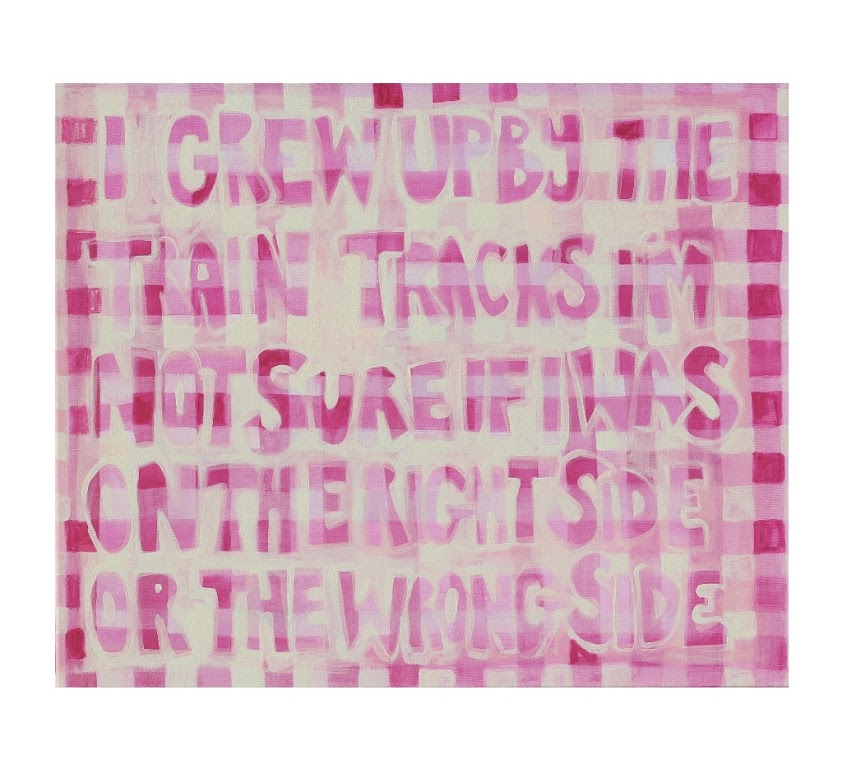 I GREW UP BY THE
TRAIN TRACKS I'M
NOT SURE IF I WAS
ON THE RIGHT SIDE
OR THE WRONG SIDE